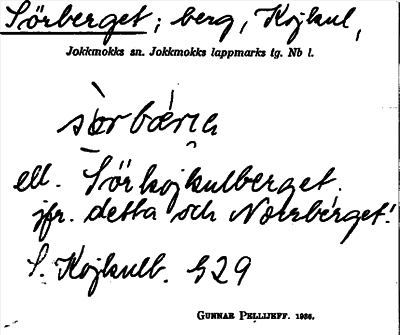 Sörberget; berg, Kojkul,
Jokkmokks sn. Jokkmokks lappmarks tg. Nb l.
ell. Sörkojkulberget.
jfr. detta och Norrberget!
S. Kojkulb. G29
GUNNAR PELLIJEFF. 1936.